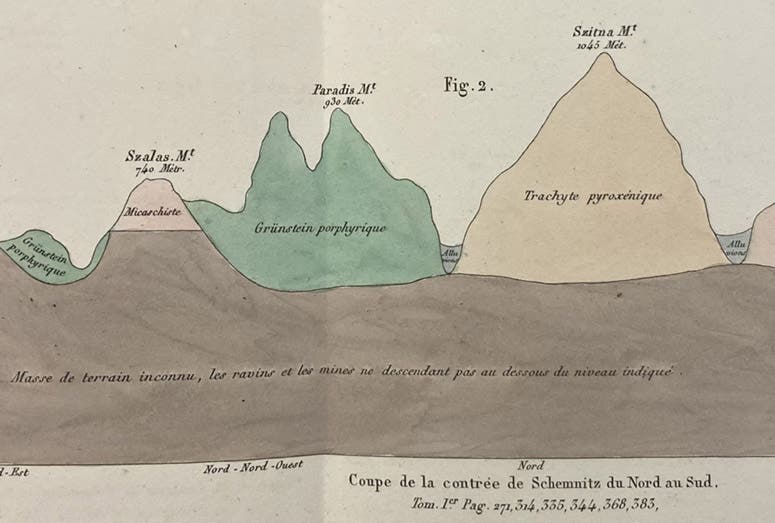 Szitna M.t
1045 Mét.
Paradis M.t
930 Mèt.
Fig. 2.
Szalas. M.t
740 Métr.
Micaschiste
Grünstein porphyrique
Trachyte pyroxénique
Grünstein
porphyrique
Allu
vions
Allu
vions
Masse de terrain inconnu, les ravins et les mines ne descendant pas au dessous du niveau indiqué.
d-Est
Nord-Nord-Ouest
Nord
Coupe de la contrée de Schemnitz du Nord au Sud.
Tom. I.er Pag. 271, 314, 335, 344, 368, 383,